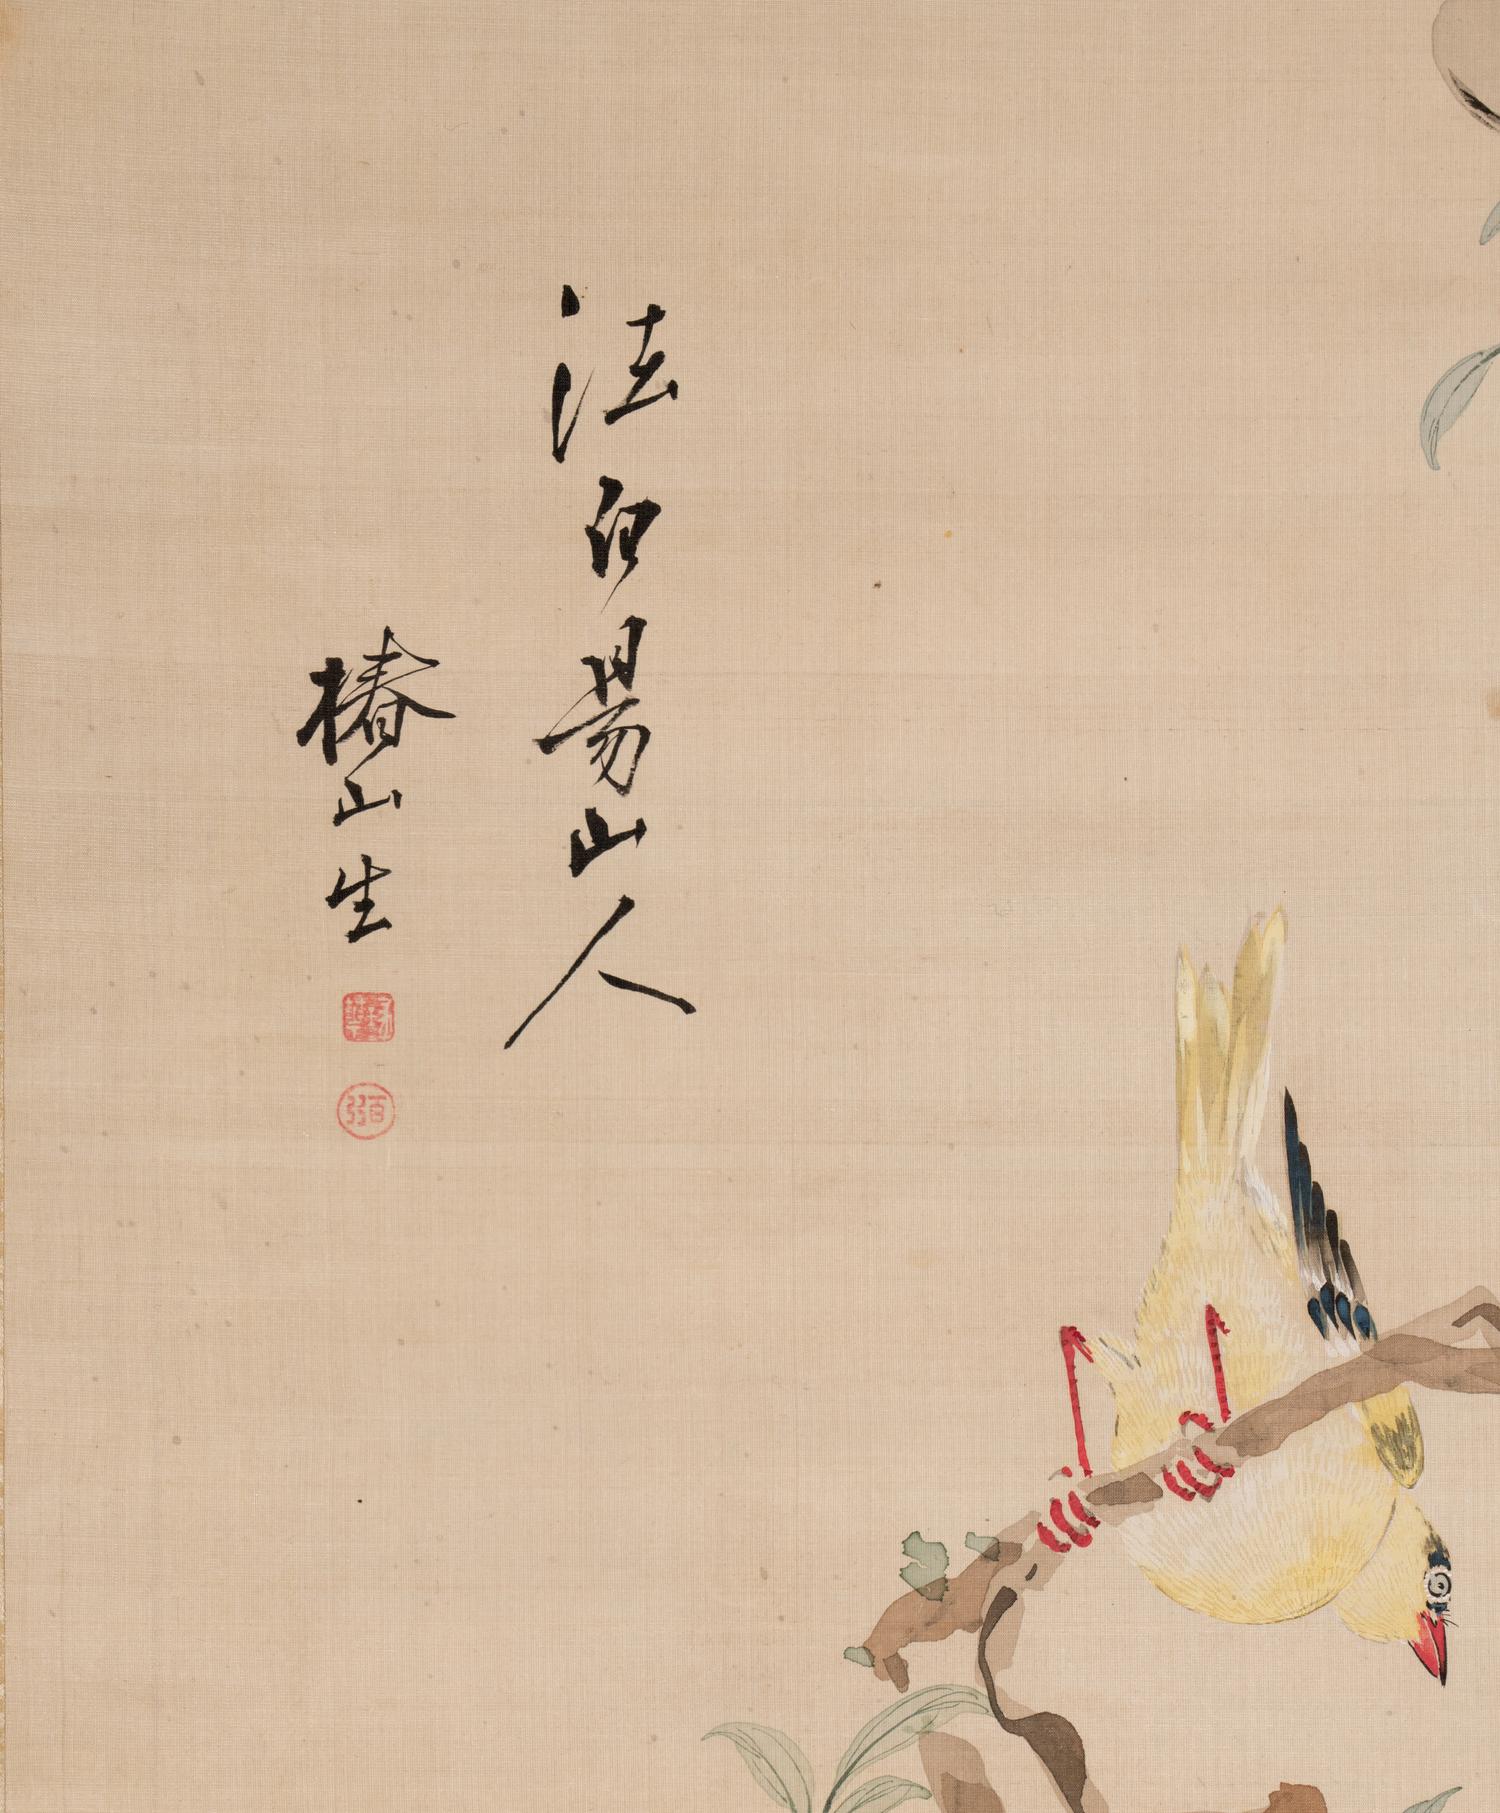 法白昜山人
椿山生
弼